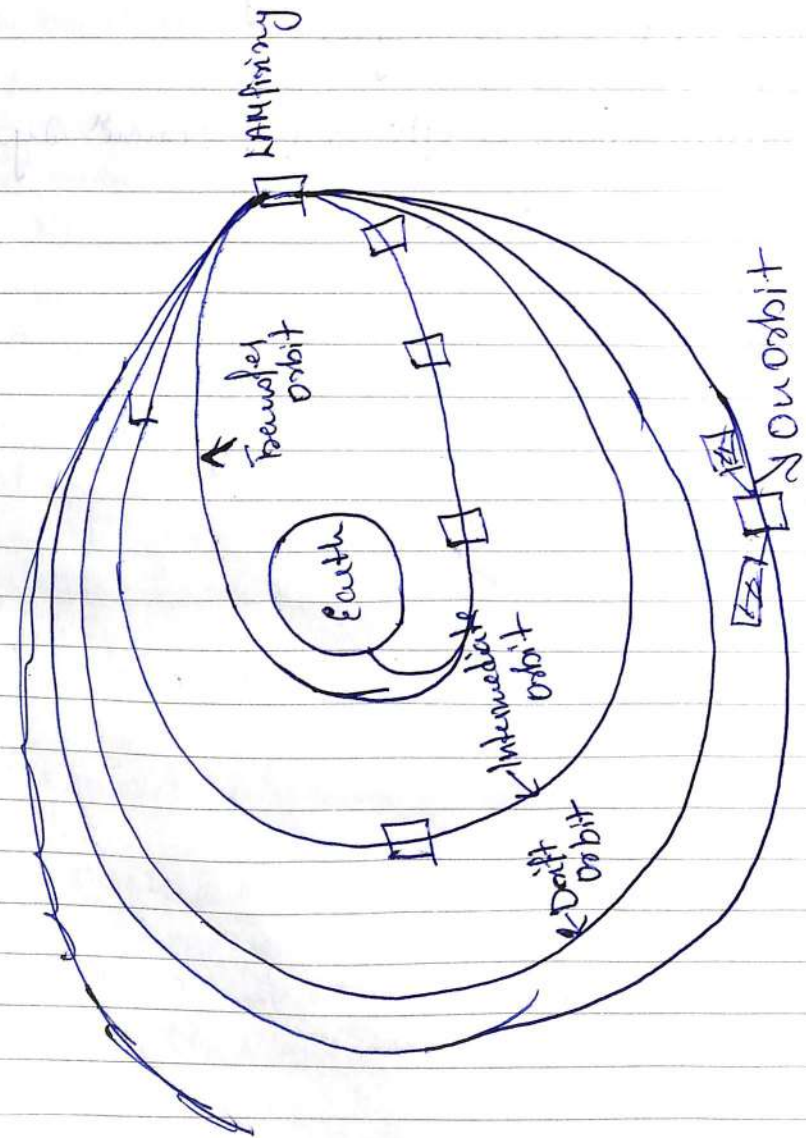 LAM firing
Transfer
orbit
Earth
Intermediate
orbit
Drift
orbit
On orbit